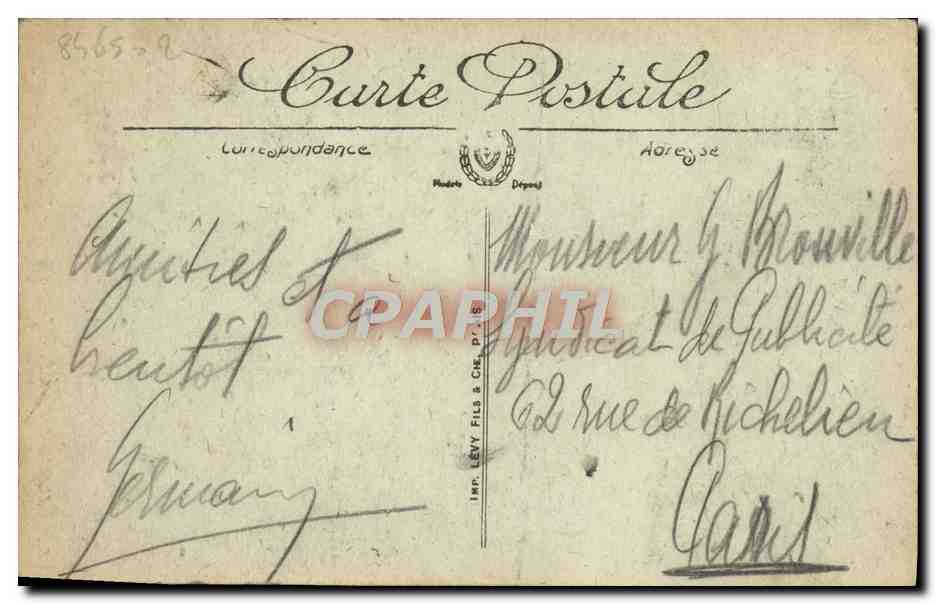 8465-2
Carte Postale
Correspondance
Adresse
Modèle Déposé
Amitiés et à
bientôt
Germain
IMP. LÉVY FILS & CIE, P'. S
Monsieur G. Brouville
Syndicat de Publicité
62 rue de Richelieu
Paris
CPAPHIL